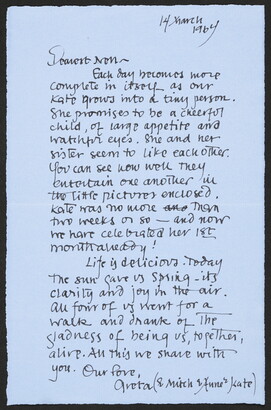 14 March
1964
Dearest Nell ~
Each day becomes more
complete in itself as our
Kate grows into a tiny person.
She promises to be a cheerful
child, of large appetite and
watchful eyes. She and her
sister seem to like each other.
You can see how well they
entertain one another in
the little pictures enclosed.
Kate was no more than
two weeks or so — and now
we have celebrated her 1st
month already!
Life is delicious. Today
the sun gave us Spring – its
clarity and joy in the air.
All four of us went for a
walk and drank of the
gladness of being us, together,
alive. All this we share with
you.
Our love,
Greta (& Mitch & June & Kate)